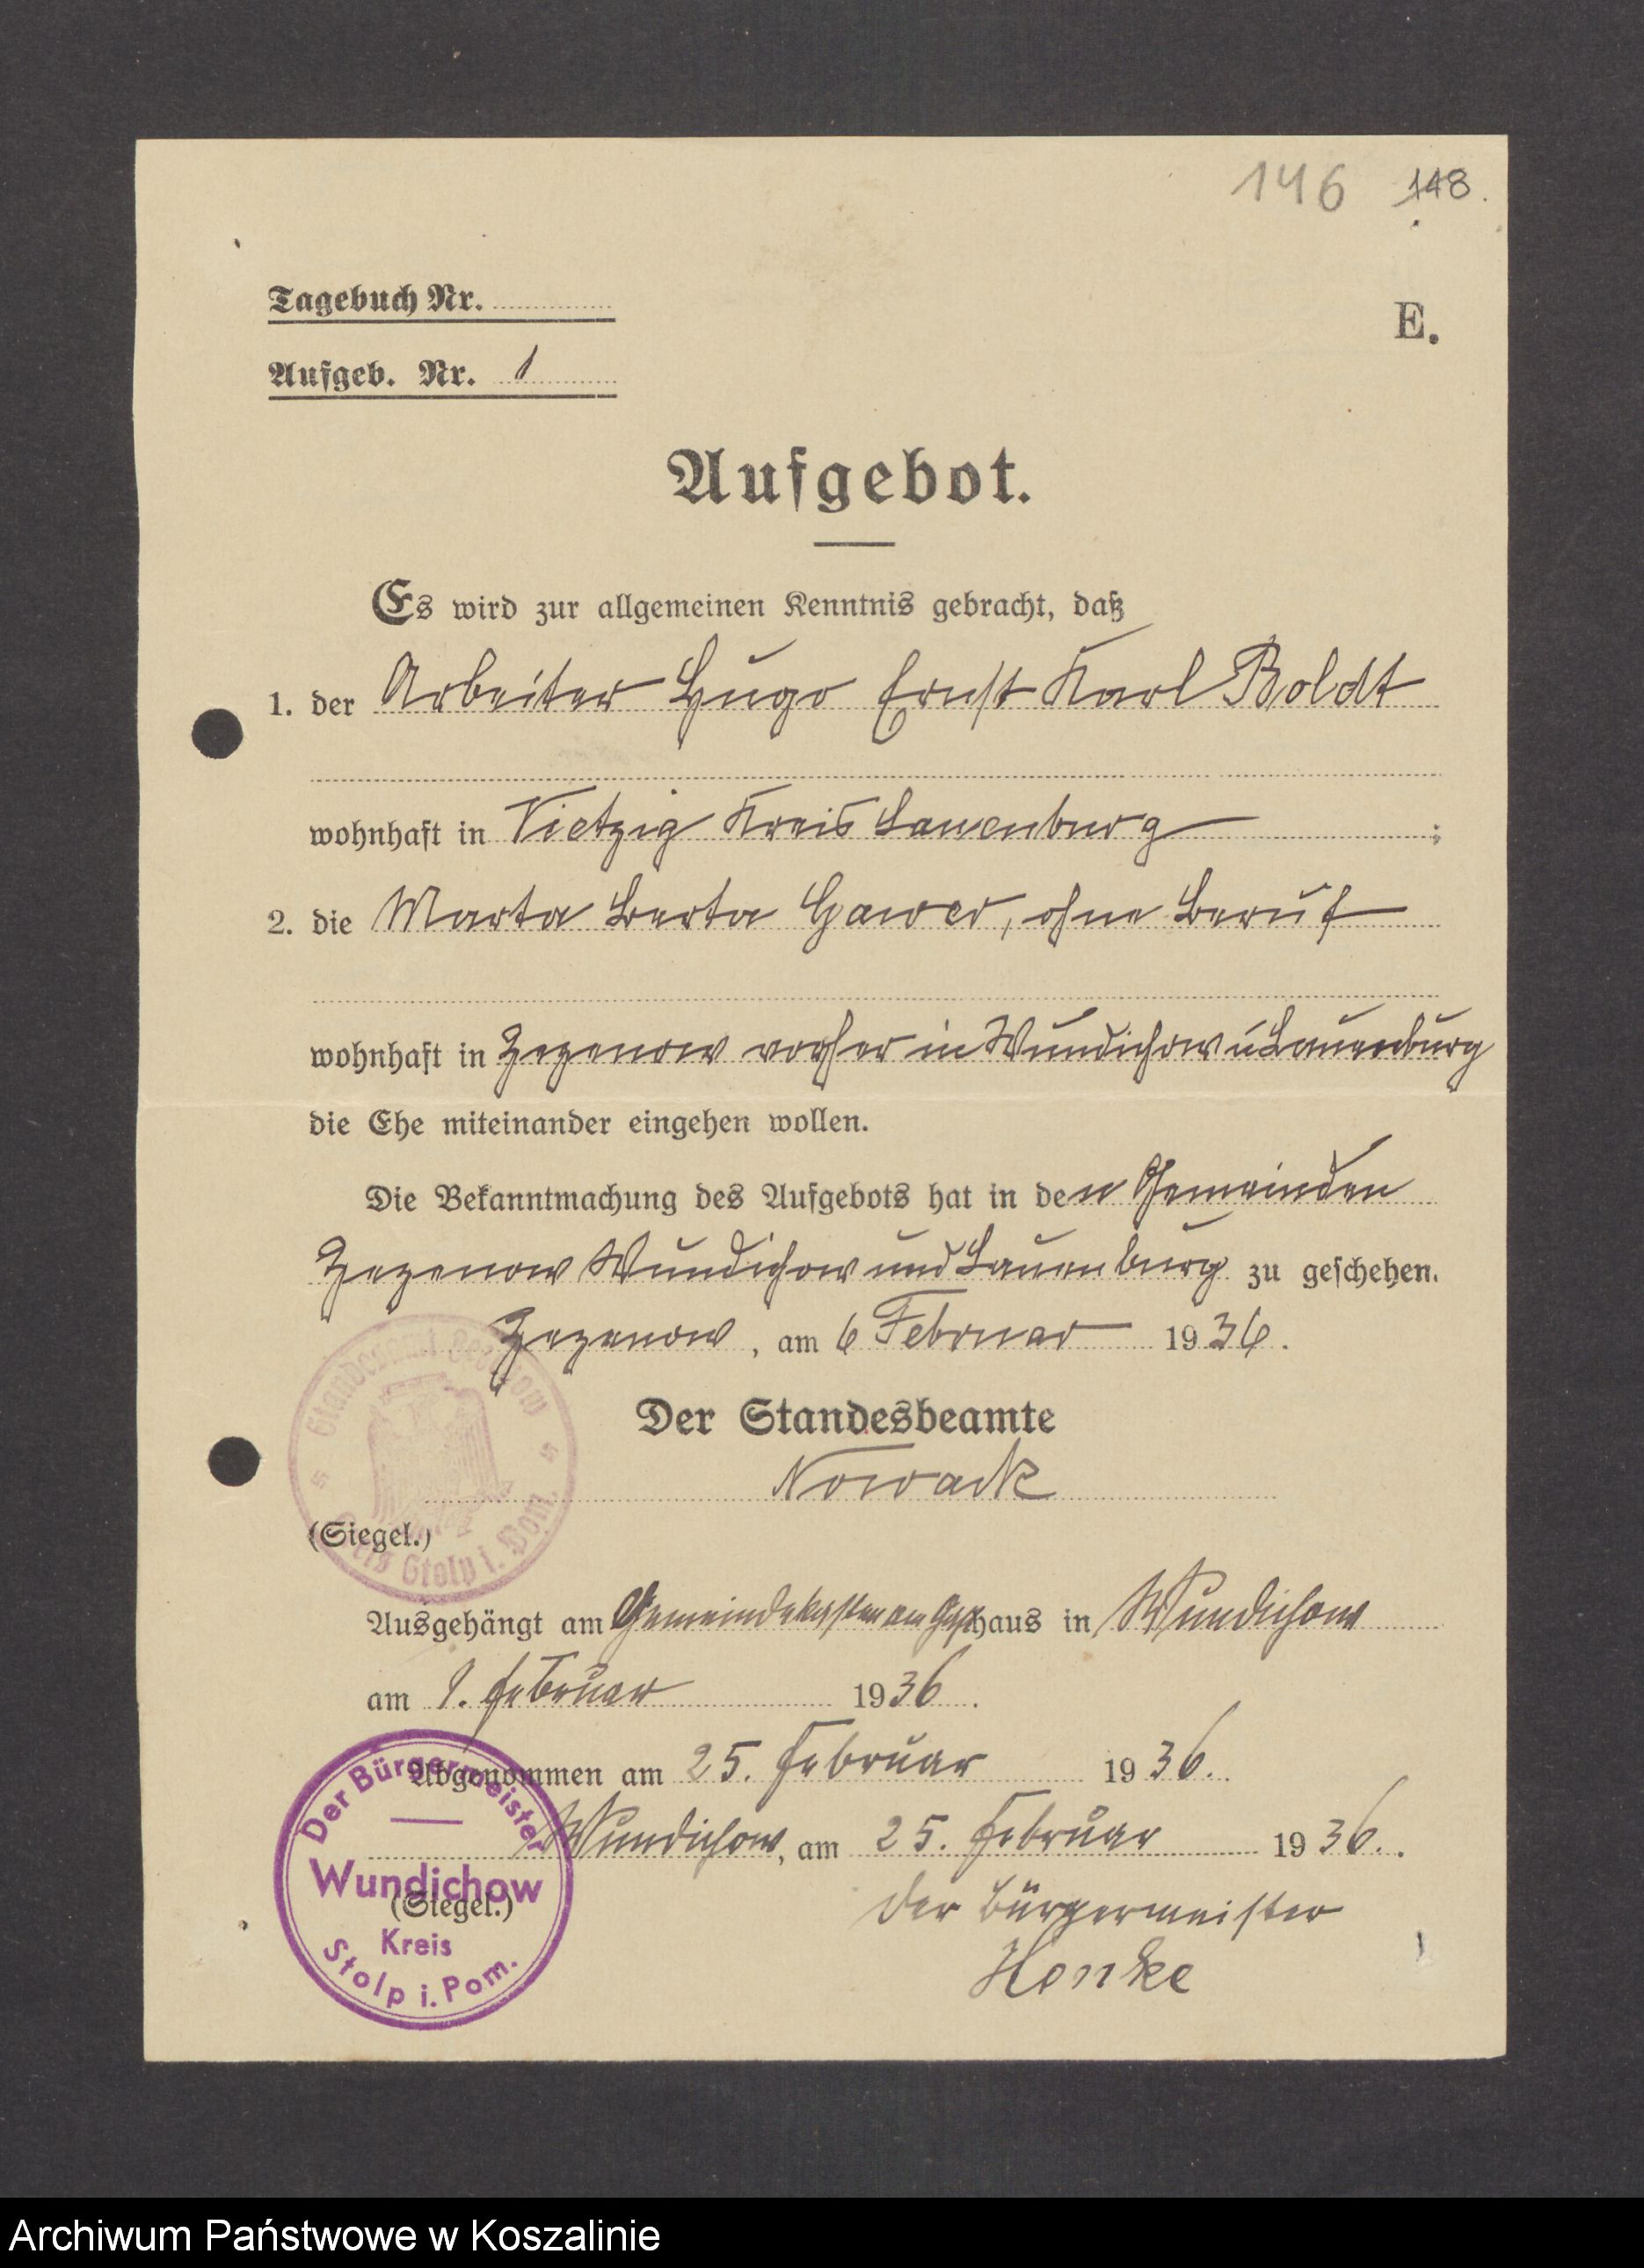 146 148.
Tagebuch Nr.
E.
Aufgeb. Nr. 1
Aufgebot.
Es wird zur allgemeinen Kenntnis gebracht, daß
1. der Arbeiter Hugo Ernst Karl Boldt
wohnhaft in Vietzig Kreis Lauenburg ;
2. die Marta Berta Gawer, ohne Beruf
wohnhaft in Zezenow vorher in Wundichow u Lauenburg
die Ehe miteinander eingehen wollen.
Die Bekanntmachung des Aufgebots hat in den Gemeinden
Zezenow Wundichow und Lauenburg zu geschehen.
Zezenow, am 6 Februar 1936.
Der Standesbeamte
Nowack
(Siegel.)
Standesamt Zezenow
Kreis Stolp i. Pom.
Ausgehängt am Gemeindekasten am haus in Wundichow
am 9. Februar 1936.
Abgenommen am 25. Februar 1936.
Wundichow, am 25. Februar 1936.
(Siegel.)
Der Bürgermeister
Wundichow
Kreis
Stolp i. Pom.
Der Bürgermeister
Henke
Archiwum Państwowe w Koszalinie